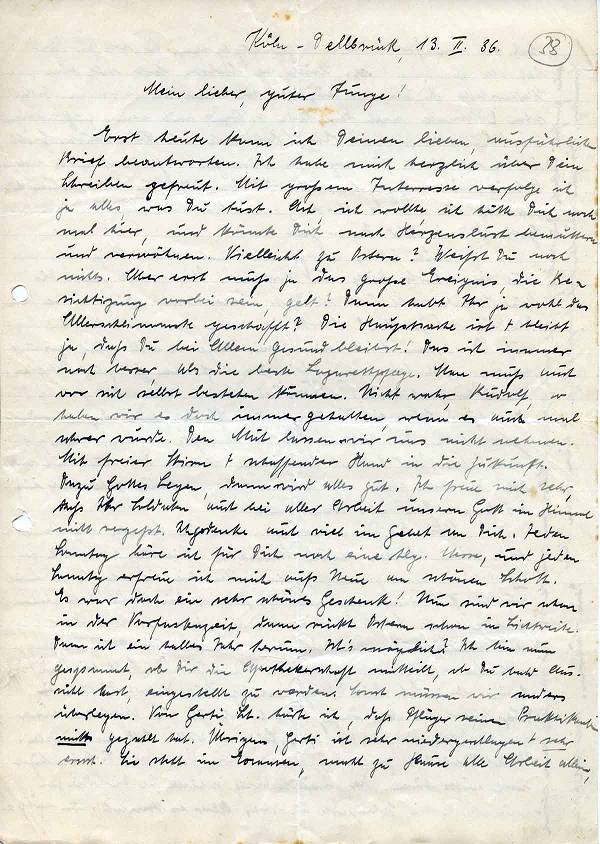 Köln-Dellbrück, 13. II. 36. 38
Mein lieber, guter Junge!
Erst heute kann ich Deinen lieben, ausführlichen
Brief beantworten. Ich habe mich herzlich über Dein
Schreiben gefreut. Mit grossem Interresse verfolge ich
ja alles, was Du tust. Ach, ich wollte, ich hätte Dich noch
mal hier, und könnte Dich nach Herzenslust bemuttern
und verwöhnen. Vielleicht zu Ostern? Weißt Du noch
nichts. Aber erst muß ja das große Ereignis, die Be-
sichtigung vorbei sein, gelt! Dann habt Ihr ja wohl das
Allerschlimmste geschafft? Die Hauptsache ist + bleibt
ja, daß Du bei Allem gesund bleibst! Das ist immer
noch besser, als die beste Lazarettpflege. Man muß auch
vor sich selbst bestehen können. Nicht wahr, Rudolf, so
haben wir es doch immer gehalten, wenn es auch mal
schwer wurde. Den Mut lassen wir uns nicht nehmen.
Mit freier Stirn + schaffender Hand in die Zukunft.
Dazu Gottes Segen, dann wird alles gut. Ich freue mich sehr,
daß Ihr Soldaten auch bei aller Arbeit unseren Gott im Himmel
nicht vergeßt. Ich gedenke auch viel im Gebet an Dich. Jeden
Sonntag höre ich für Dich noch eine hlg. Messe, und jeden
Sonntag erfreue ich mich aufs Neue am schönen Schott.
Es war doch ein sehr schönes Geschenk! Nun sind wir schon
in der Vorfastenzeit, dann rückt Ostern schon in Sichtweite.
Dann ist ein halbes Jahr herum. Ist's möglich? Ich bin nun
gespannt, ob Dir die Apothekerschaft mitteilt, ob Du bald Aus-
sicht hast, eingestellt zu werden. Sonst müssen wir anders
überlegen. Von Gerti St. hörte ich, daß Pflüger seinen Praktikanten
nichts gezahlt hat. Übrigens, Gerti ist sehr niedergeschlagen + sehr
ernst. Sie steht im Examen, macht zu Hause alle Arbeit allein,